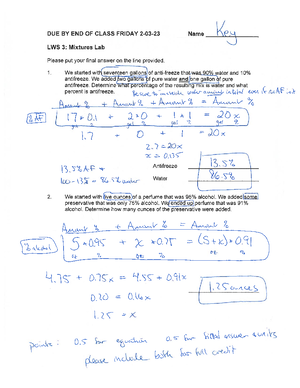 DUE BY END OF CLASS FRIDAY 2-03-23 Name Key
LWS 3: Mixtures Lab
Please put your final answer on the line provided.
1. We started with seventeen gallons of anti-freeze that was 90% water and 10%
antifreeze. We added two gallons of pure water and one gallon of pure
antifreeze. Determine what percentage of the resulting mix is water and what
percent is antifreeze.
Amount % + Amount % + Amount % = Amount %
% AF
17 • 0.1 + 2 • 0 + 1 • 1 = 20 x
1.7 + 0 + 1 = 20x
2.7 = 20x
x = 0.135
13.5% AF
Antifreeze 13.5%
100-13.5 = 86.5% water
Water 86.5%
2. We started with five ounces of a perfume that was 95% alcohol. We added some
preservative that was only 75% alcohol. We ended up perfume that was 91%
alcohol. Determine how many ounces of the preservative were added.
Amount % + Amount % = Amount %
% alcohol
5 • 0.95 + x • 0.75 = (5+x) • 0.91
4.75 + 0.75x = 4.55 + 0.91x
0.20 = 0.16x
1.25 = x
1.25 ounces
points: 0.5 for equation 0.5 for final answer & units
please include both for full credit